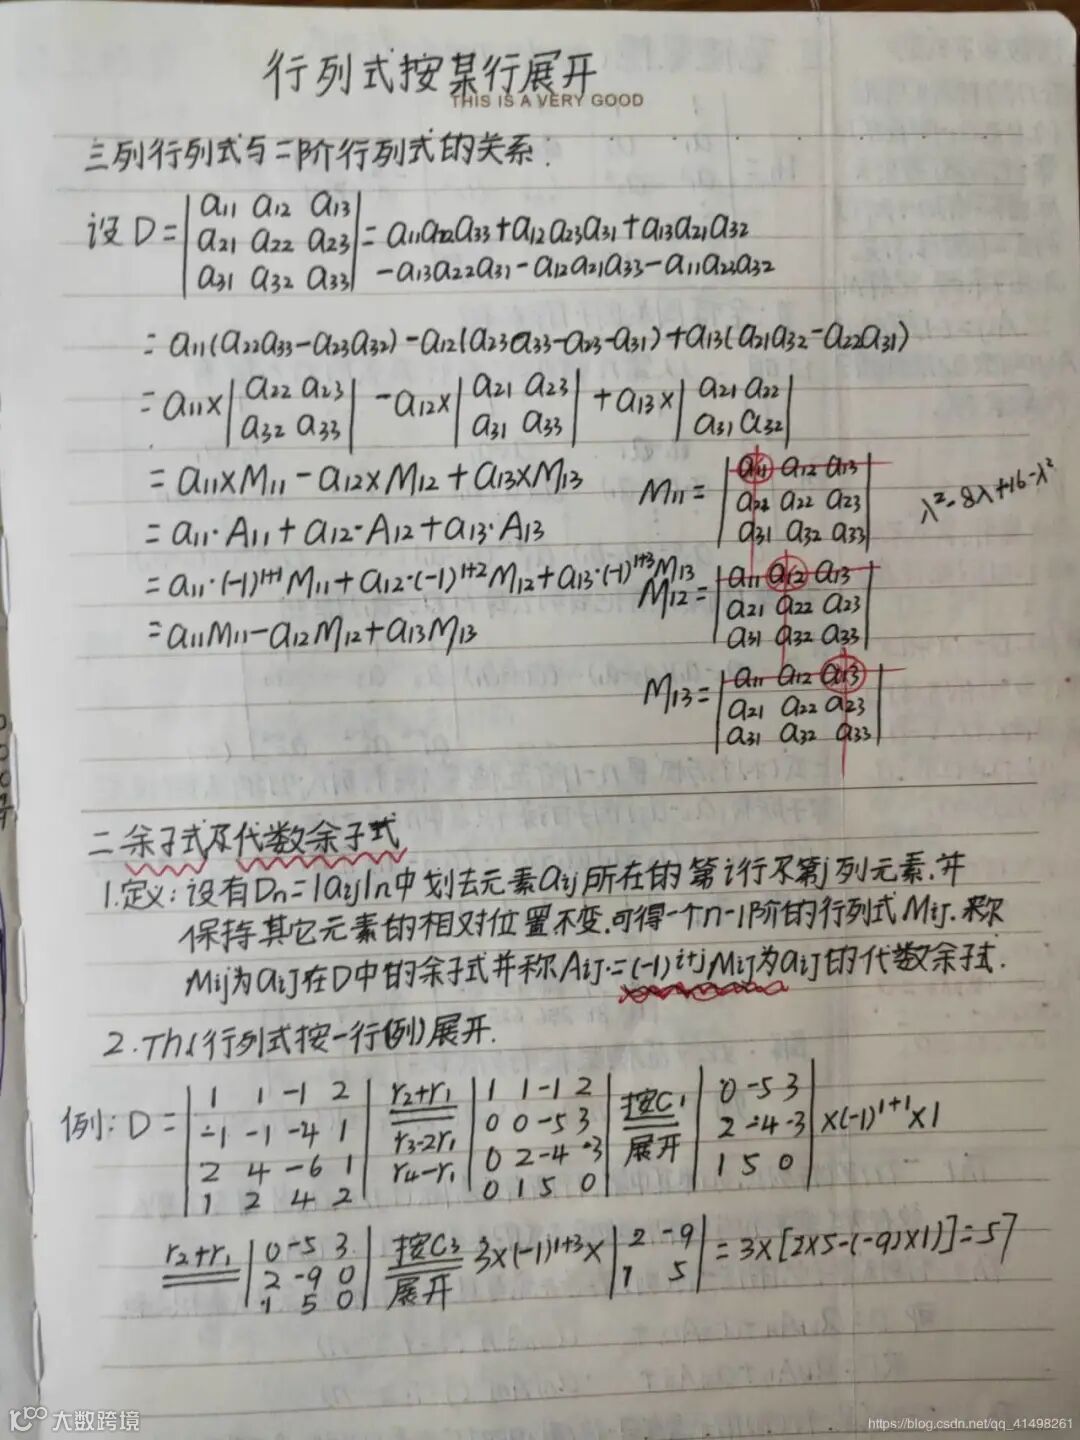 行列式按某行展开
THIS IS A VERY GOOD
三列行列式与二阶行列式的关系.
设 D = | a11 a12 a13 | = a11a22a33+a12a23a31+a13a21a32
| a21 a22 a23 |
| a31 a32 a33 | -a13a22a31-a12a21a33-a11a23a32
= a11(a22a33-a23a32)-a12(a23a33-a23-a31)+a13(a21a32-a22a31)
= a11× | a22 a23 | -a12× | a21 a23 | +a13× | a21 a22 |
| a32 a33 | | a31 a33 | | a31 a32 |
= a11×M11 - a12×M12 + a13×M13
= a11·A11 + a12·A12 + a13·A13
= a11·(-1)^1+1 M11 + a12·(-1)^1+2 M12 + a13·(-1)^1+3 M13
= a11M11-a12M12+a13M13
M11 = | a11 a12 a13 |
| a21 a22 a23 |
| a31 a32 a33 |
λ²-8λ+16-λ²
M12 = | a11 a12 a13 |
| a21 a22 a23 |
| a31 a32 a33 |
M13 = | a11 a12 a13 |
| a21 a22 a23 |
| a31 a32 a33 |
二余子式及代数余子式
1.定义: 设有Dn=|aij|n中划去元素aij所在的第i行不第j列元素.并
保持其它元素的相对位置不变.可得一个n-1阶的行列式Mij.来称
Mij为aij在D中的余子式并称Aij.=(-1)^i+j Mij为aij的代数余子式.
2.Th1(行列式按一行(例)展开.
例: D = | 1 1 -1 2 | r2+r1 | 1 1 -1 2 | 按C1 | 0 -5 3 |
| -1 -1 -4 1 | r3-2r1 | 0 0 -5 3 | 展开 | 2 -4 -3 | ×(-1)^1+1 ×1
| 2 4 -6 1 | r4-r1 | 0 2 -4 -3 | | 1 5 0 |
| 1 2 4 2 | | 0 1 5 0 |
r2+r1 | 0 -5 3 | 按C3 3×(-1)^1+3 × | 2 -9 | = 3×[2×5-(-9)×1)]=57
| 2 -9 0 | 展开 | 1 5 |
| 1 5 0 |
大数跨境
https://blog.csdn.net/qq_41498261